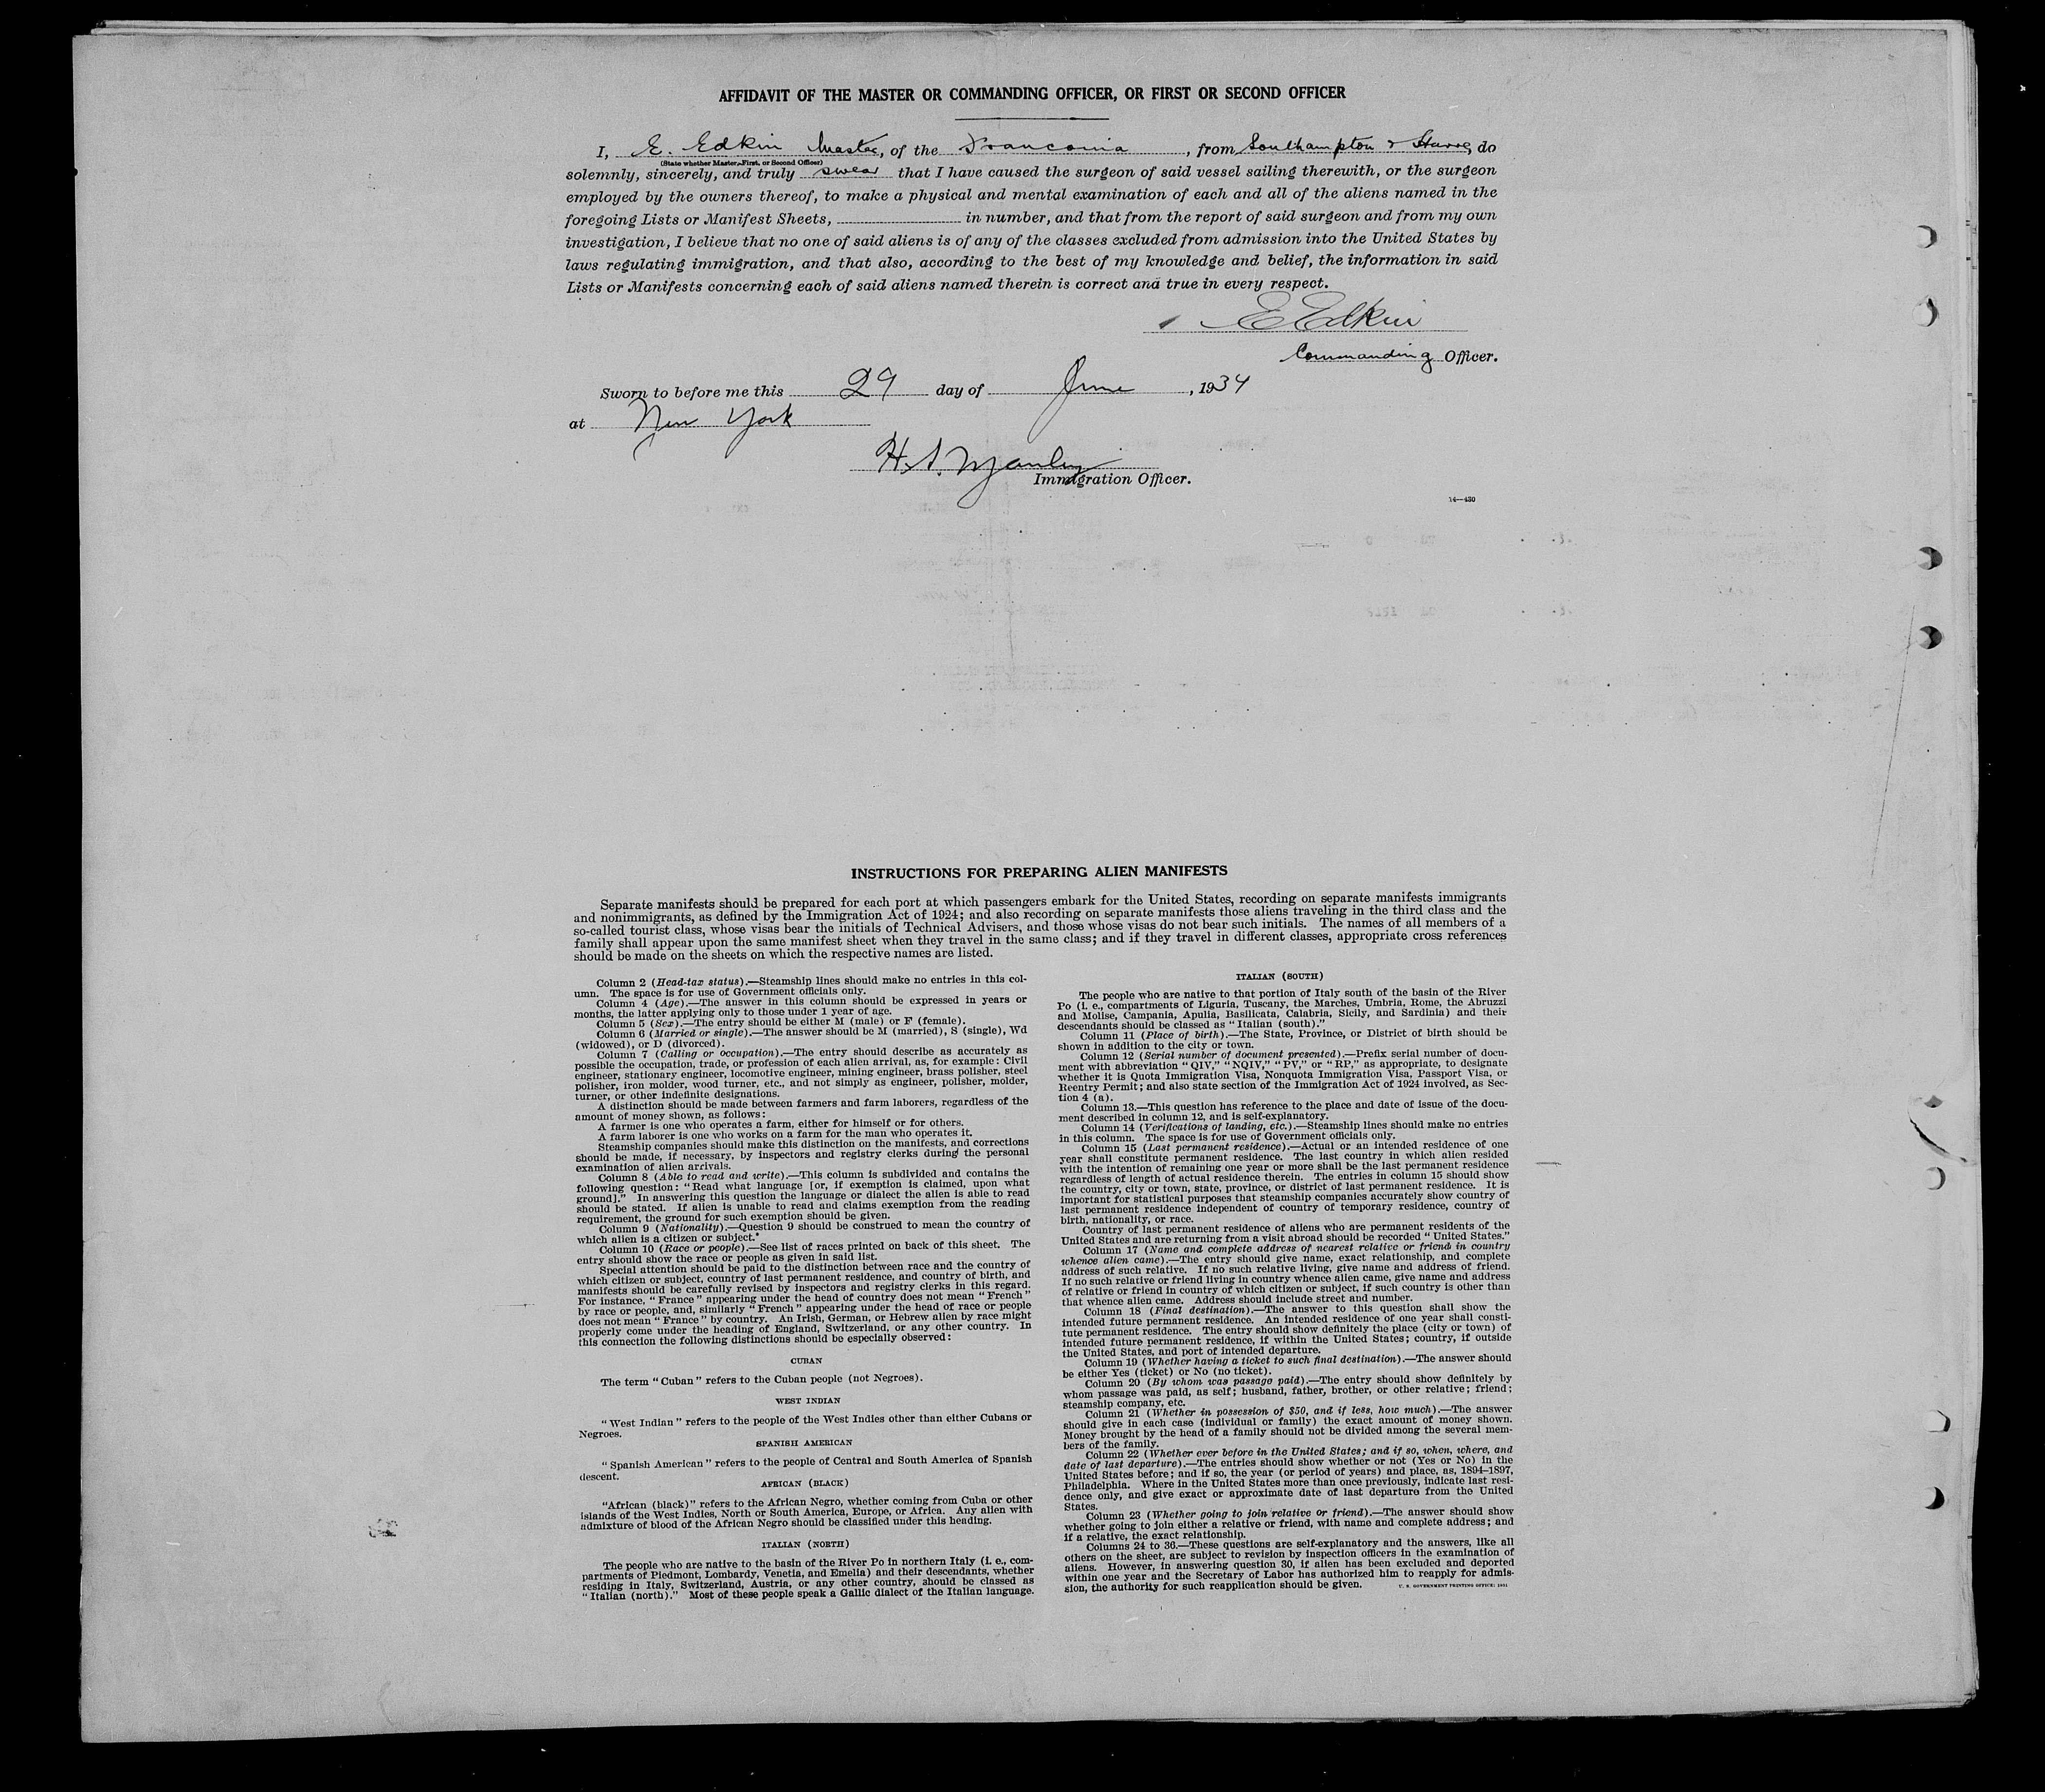 AFFIDAVIT OF THE MASTER OR COMMANDING OFFICER, OR FIRST OR SECOND OFFICER
I, E. Edkin Master, of the Franconia, from Southampton & Havre, do
(State whether Master, First, or Second Officer)
solemnly, sincerely, and truly swear that I have caused the surgeon of said vessel sailing therewith, or the surgeon
employed by the owners thereof, to make a physical and mental examination of each and all of the aliens named in the
foregoing Lists or Manifest Sheets, in number, and that from the report of said surgeon and from my own
investigation, I believe that no one of said aliens is of any of the classes excluded from admission into the United States by
laws regulating immigration, and that also, according to the best of my knowledge and belief, the information in said
Lists or Manifests concerning each of said aliens named therein is correct and true in every respect.
E Edkin
Commanding Officer.
Sworn to before me this 29 day of June, 1934
at New York
H. S. Manley
Immigration Officer.
14—430
INSTRUCTIONS FOR PREPARING ALIEN MANIFESTS
Separate manifests should be prepared for each port at which passengers embark for the United States, recording on separate manifests immigrants
and nonimmigrants, as defined by the Immigration Act of 1924; and also recording on separate manifests those aliens traveling in the third class and the
so-called tourist class, whose visas bear the initials of Technical Advisers, and those whose visas do not bear such initials. The names of all members of a
family shall appear upon the same manifest sheet when they travel in the same class; and if they travel in different classes, appropriate cross references
should be made on the sheets on which the respective names are listed.
Column 2 (Head-tax status).—Steamship lines should make no entries in this col-
umn. The space is for use of Government officials only.
Column 4 (Age).—The answer in this column should be expressed in years or
months, the latter applying only to those under 1 year of age.
Column 5 (Sex).—The entry should be either M (male) or F (female).
Column 6 (Married or single).—The answer should be M (married), S (single), Wd
(widowed), or D (divorced).
Column 7 (Calling or occupation).—The entry should describe as accurately as
possible the occupation, trade, or profession of each alien arrival, as, for example: Civil
engineer, stationary engineer, locomotive engineer, mining engineer, brass polisher, steel
polisher, iron molder, wood turner, etc., and not simply as engineer, polisher, molder,
turner, or other indefinite designations.
A distinction should be made between farmers and farm laborers, regardless of the
amount of money shown, as follows:
A farmer is one who operates a farm, either for himself or for others.
A farm laborer is one who works on a farm for the man who operates it.
Steamship companies should make this distinction on the manifests, and corrections
should be made, if necessary, by inspectors and registry clerks during the personal
examination of alien arrivals.
Column 8 (Able to read and write).—This column is subdivided and contains the
following question: "Read what language [or, if exemption is claimed, upon what
ground]." In answering this question the language or dialect the alien is able to read
should be stated. If alien is unable to read and claims exemption from the reading
requirement, the ground for such exemption should be given.
Column 9 (Nationality).—Question 9 should be construed to mean the country of
which alien is a citizen or subject.
Column 10 (Race or people).—See list of races printed on back of this sheet. The
entry should show the race or people as given in said list.
Special attention should be paid to the distinction between race and the country of
which citizen or subject, country of last permanent residence, and country of birth, and
manifests should be carefully revised by inspectors and registry clerks in this regard.
For instance, "France" appearing under the head of country does not mean "French"
by race or people, and, similarly "French" appearing under the head of race or people
does not mean "France" by country. An Irish, German, or Hebrew alien by race might
properly come under the heading of England, Switzerland, or any other country. In
this connection the following distinctions should be especially observed:
CUBAN
The term "Cuban" refers to the Cuban people (not Negroes).
WEST INDIAN
"West Indian" refers to the people of the West Indies other than either Cubans or
Negroes.
SPANISH AMERICAN
"Spanish American" refers to the people of Central and South America of Spanish
descent.
AFRICAN (BLACK)
"African (black)" refers to the African Negro, whether coming from Cuba or other
islands of the West Indies, North or South America, Europe, or Africa. Any alien with
admixture of blood of the African Negro should be classified under this heading.
ITALIAN (NORTH)
The people who are native to the basin of the River Po in northern Italy (i. e., com-
partments of Piedmont, Lombardy, Venetia, and Emelia) and their descendants, whether
residing in Italy, Switzerland, Austria, or any other country, should be classed as
"Italian (north)." Most of these people speak a Gallic dialect of the Italian language.
ITALIAN (SOUTH)
The people who are native to that portion of Italy south of the basin of the River
Po (i. e., compartments of Liguria, Tuscany, the Marches, Umbria, Rome, the Abruzzi
and Molise, Campania, Apulia, Basilicata, Calabria, Sicily, and Sardinia) and their
descendants should be classed as "Italian (south)."
Column 11 (Place of birth).—The State, Province, or District of birth should be
shown in addition to the city or town.
Column 12 (Serial number of document presented).—Prefix serial number of docu-
ment with abbreviation "QIV," "NQIV," "PV," or "RP," as appropriate, to designate
whether it is Quota Immigration Visa, Nonquota Immigration Visa, Passport Visa, or
Reentry Permit; and also state section of the Immigration Act of 1924 involved, as Sec-
tion 4 (a).
Column 13.—This question has reference to the place and date of issue of the docu-
ment described in column 12, and is self-explanatory.
Column 14 (Verifications of landing, etc.).—Steamship lines should make no entries
in this column. The space is for use of Government officials only.
Column 15 (Last permanent residence).—Actual or an intended residence of one
year shall constitute permanent residence. The last country in which alien resided
with the intention of remaining one year or more shall be the last permanent residence
regardless of length of actual residence therein. The entries in column 15 should show
the country, city or town, state, province, or district of last permanent residence. It is
important for statistical purposes that steamship companies accurately show country of
last permanent residence independent of country of temporary residence, country of
birth, nationality, or race.
Country of last permanent residence of aliens who are permanent residents of the
United States and are returning from a visit abroad should be recorded "United States."
Column 17 (Name and complete address of nearest relative or friend in country
whence alien came).—The entry should give name, exact relationship, and complete
address of such relative. If no such relative living, give name and address of friend.
If no such relative or friend living in country whence alien came, give name and address
of relative or friend in country of which citizen or subject, if such country is other than
that whence alien came. Address should include street and number.
Column 18 (Final destination).—The answer to this question shall show the
intended future permanent residence. An intended residence of one year shall consti-
tute permanent residence. The entry should show definitely the place (city or town) of
intended future permanent residence, if within the United States; country, if outside
the United States, and port of intended departure.
Column 19 (Whether having a ticket to such final destination).—The answer should
be either Yes (ticket) or No (no ticket).
Column 20 (By whom was passage paid).—The entry should show definitely by
whom passage was paid, as self; husband, father, brother, or other relative; friend;
steamship company, etc.
Column 21 (Whether in possession of $50, and if less, how much).—The answer
should give in each case (individual or family) the exact amount of money shown.
Money brought by the head of a family should not be divided among the several mem-
bers of the family.
Column 22 (Whether ever before in the United States; and if so, when, where, and
date of last departure).—The entries should show whether or not (Yes or No) in the
United States before; and if so, the year (or period of years) and place, as, 1894–1897,
Philadelphia. Where in the United States more than once previously, indicate last resi-
dence only, and give exact or approximate date of last departure from the United
States.
Column 23 (Whether going to join relative or friend).—The answer should show
whether going to join either a relative or friend, with name and complete address; and
if a relative, the exact relationship.
Columns 24 to 36.—These questions are self-explanatory and the answers, like all
others on the sheet, are subject to revision by inspection officers in the examination of
aliens. However, in answering question 30, if alien has been excluded and deported
within one year and the Secretary of Labor has authorized him to reapply for admis-
sion, the authority for such reapplication should be given. U. S. GOVERNMENT PRINTING OFFICE: 1931